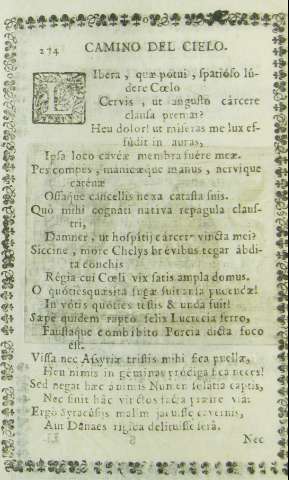 214 CAMINO DEL CIELO.
LIbera, quæ potui, spatiôso lú-
dere Cœlo
Cervis, ut angusto cárcere
clausa premar?
Heu dolor! ut miseras me lux ef-
fúdit in auras,
Ipsa loco caveæ membra fuêre meæ.
Pes compes, manicæque manus, nervique
catenæ
Ossaque cancellis nexa catasta suis.
Quò mihi cognati nativa repagula claus-
tri,
Damner, ut hospitij carcere vincta mei?
Siccine, more Chelys brévibus tegar ábdi-
ta conchis
Régia cui Cœli vix satis ampla domus.
O quóties quæsita fugæ suit ansa
In vótis quóties testus & unda fuit!
Sæpe quidem rapto felix Lucrecia ferro,
Faustaque combibito Porcia dicta foco
est.
Vissa nec Assyriæ tristis mihi sica puellæ,
Heu nimis in géminas pródiga sica neces!
Sed negat hæc ánimis Numen solatia captis,
Nec sinit hâc vinctos fráde via:
Ergo Syracúsijs malim jacuisse cavernis,
Aut Dánaes rígica delituisse serâ.
S Nec